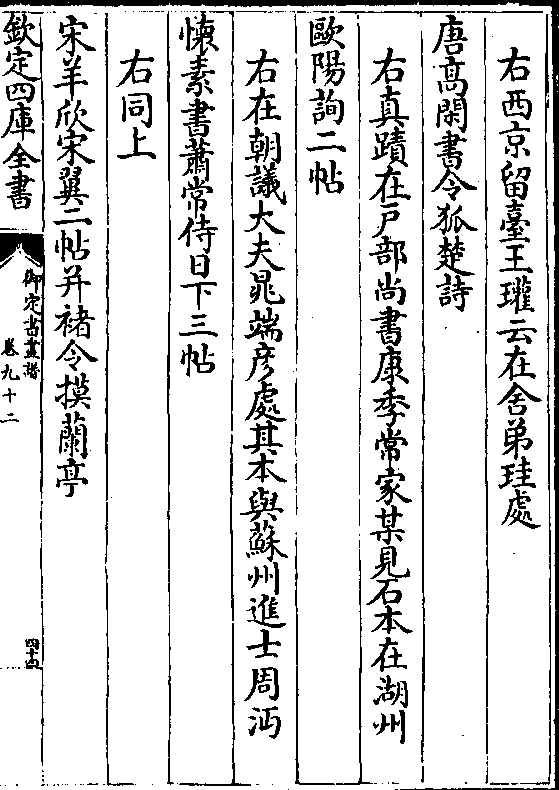 右西京留臺王瓘云在舍弟珪處
唐高閑書令狐楚詩
右真蹟在戸部尚書康季常家某見石本在湖州
歐陽詢二帖
右在朝議大夫晁端彦處其本與蘇州進士周沔
懐素書蕭常侍日下三帖
右同上
宋羊欣宋翼二帖并褚令摸蘭亭
欽定四庫全書
御定書畫譜
卷九十二
四十四